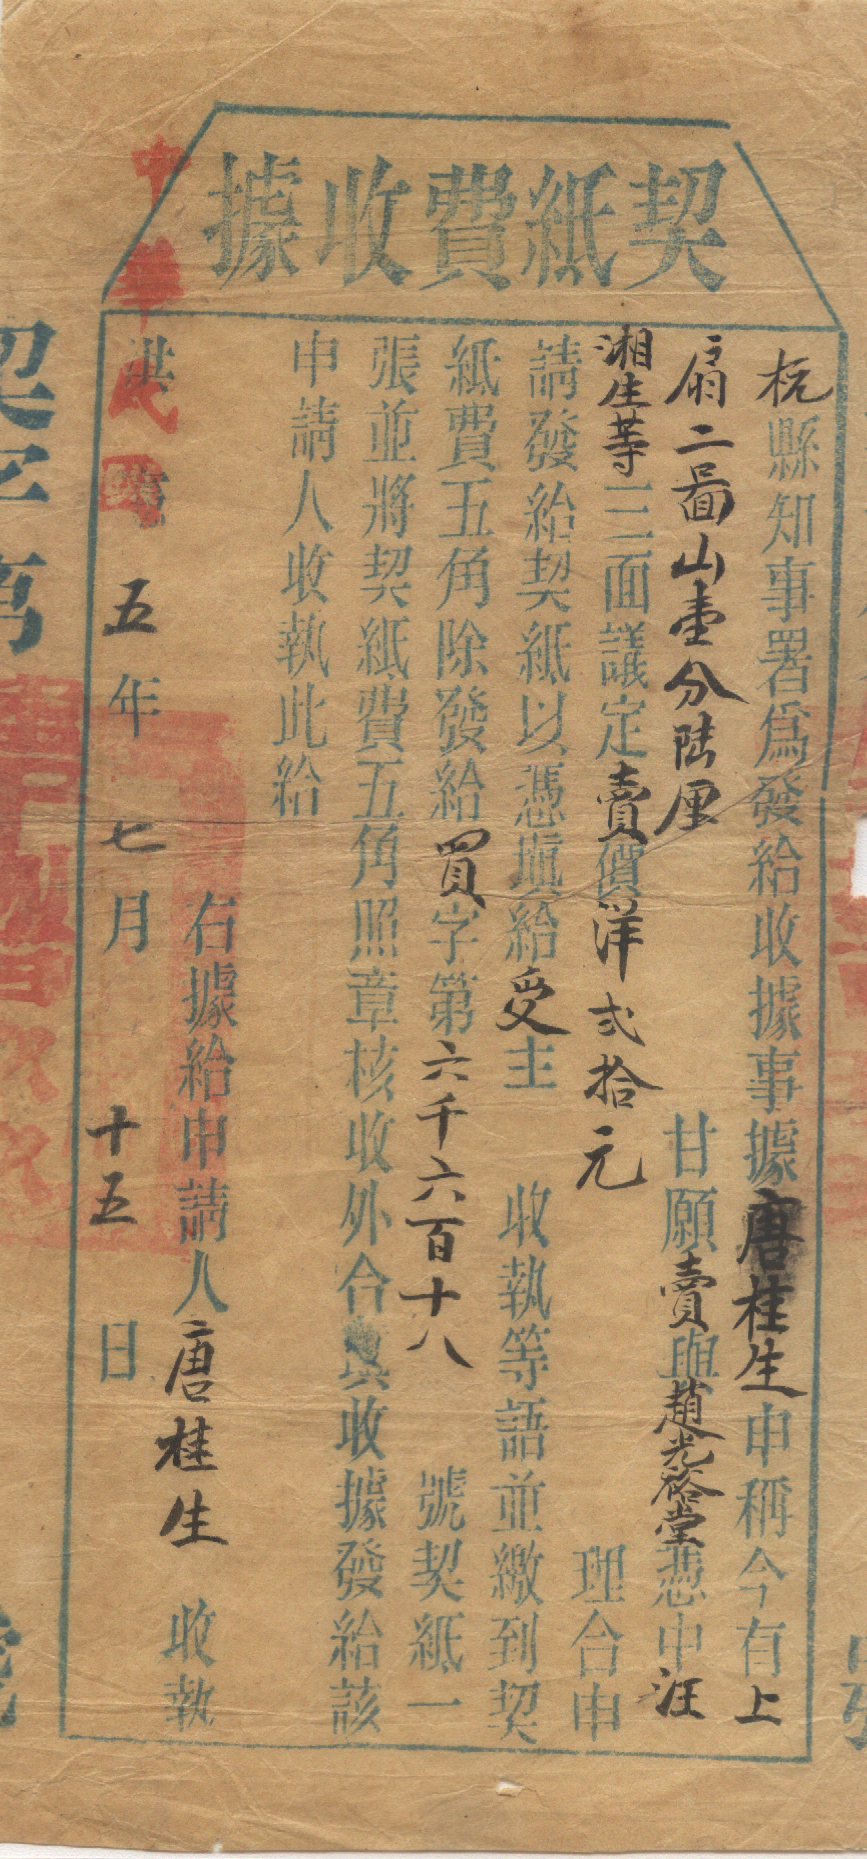 契紙費收據
杭縣知事署爲發給收據事據唐桂生申稱今有上
扇二啚山壹分陆厘 甘願賣與趙光裕堂憑中汪
湘生等三面議定賣價洋弍拾元 理合申
請發給契紙以憑塡給受主 收執等語並繳到契
紙費五角除發給買字第六千六百十八 號契紙一
張並將契紙費五角照章核收外合塡收據發給該
申請人收執此給
右據給申請人唐桂生 收執
中華民國
洪憲 五年七月十五日
契字第